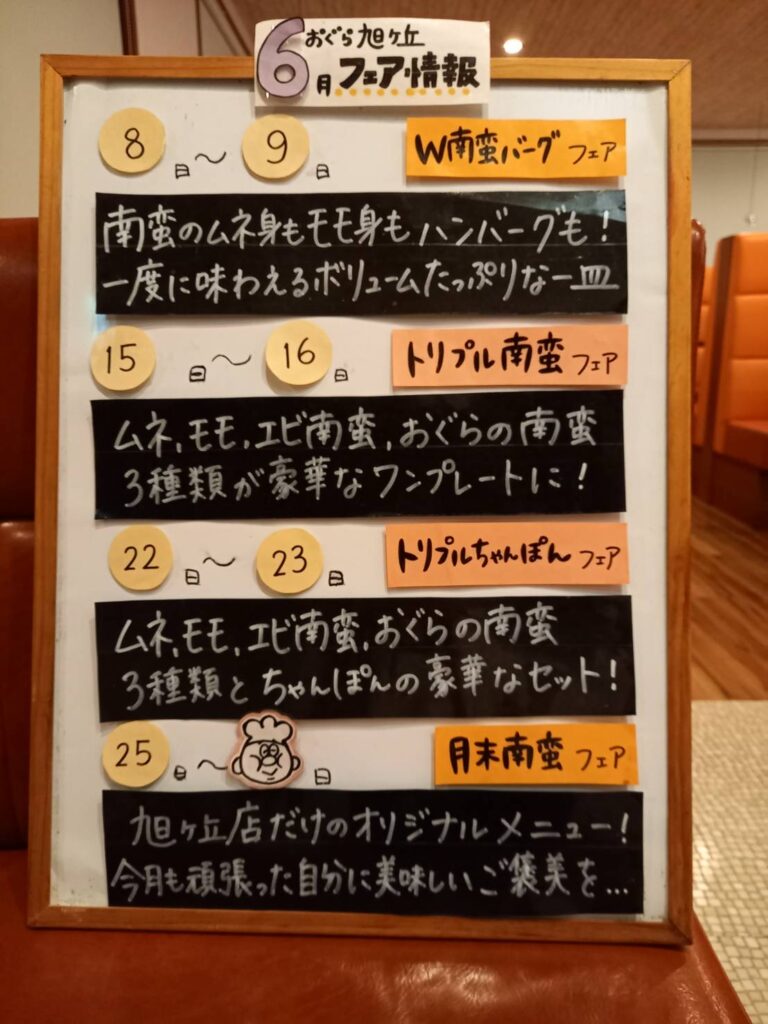 6月 おぐら旭ヶ丘
フェア情報
8日〜9日 W南蛮バーグフェア
南蛮のムネ身もモモ身もハンバーグも!
一度に味わえるボリュームたっぷりな一皿
15日〜16日 トリプル南蛮フェア
ムネ,モモ,エビ南蛮,おぐらの南蛮
3種類が豪華なワンプレートに!
22日〜23日 トリプルちゃんぽんフェア
ムネ,モモ,エビ南蛮,おぐらの南蛮
3種類とちゃんぽんの豪華なセット!
25日〜日 月末南蛮フェア
旭ヶ丘店だけのオリジナルメニュー!
今月も頑張った自分に美味しいご褒美を...